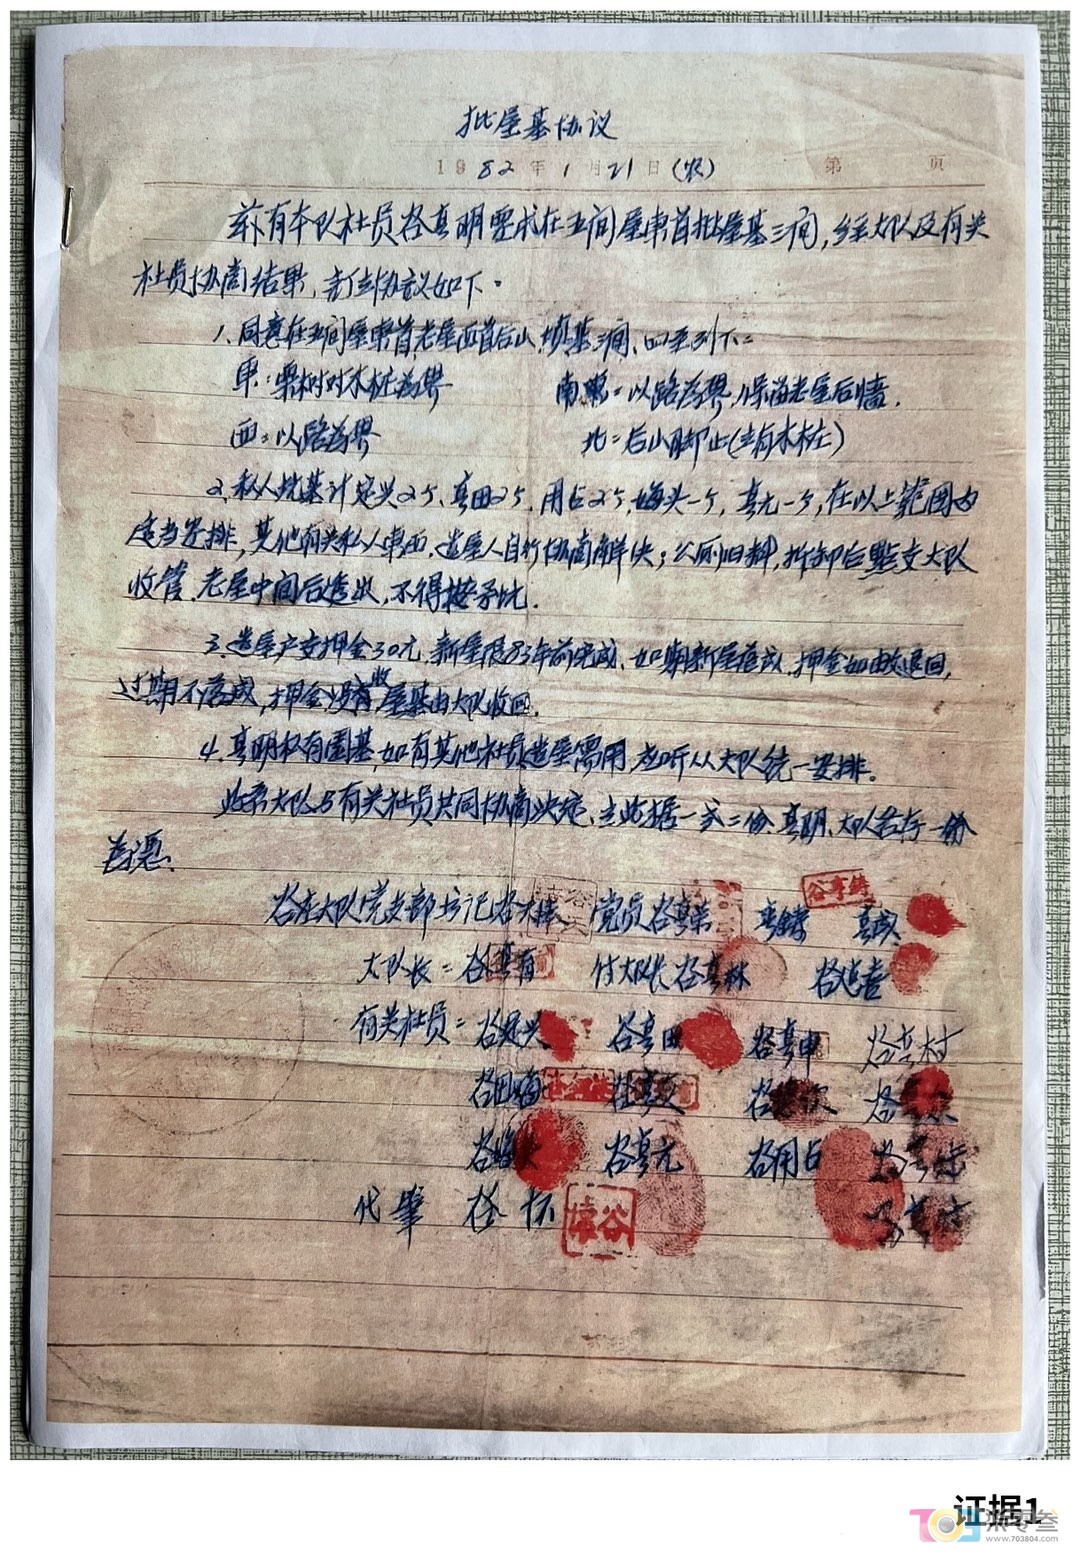 批屋基协议
1982年1月21日(农) 第 页
兹有本队社员谷真明要求在五间屋東首批屋基三间,经大队及有关
社员协商结果,订立协议如下。
1.同意在五间屋東首,老屋西首后山,坟基三间,四至列下:
東:栗树对木桩为界 南:以路为界,保留老屋后墙.
西:以路为界 北:后山脚止(立有木桩)
2.私人坑基计定兴2个,真田2个,用占2个,梅头一个,真元一个,在以上范围内
适当安排,其他有关私人東西,造屋人自行协商解决;公厕旧料,拆卸后點交大队
收管.老屋中间后造出,不得按予比.
3.造屋户交押金30元,新屋限83年前完成,如期新屋落成,押金如数退回,
过期不落成,押金没收,屋基由大队收回.
4.真明私有園基,如有其他社员造屋需用,应听从大队统一安排.
此系大队与有关社员共同协商决定,立此据一式二份,真明、大队各存一份
为凭.
大队党支部书记 党员谷真荣 真
大队长:谷真有 付大队长谷真林
有关社员:谷定兴 谷真田 谷真申 谷真村
谷田梅
谷真元 谷用占
代肇 谷怀
证据1
703804
www.703804.com